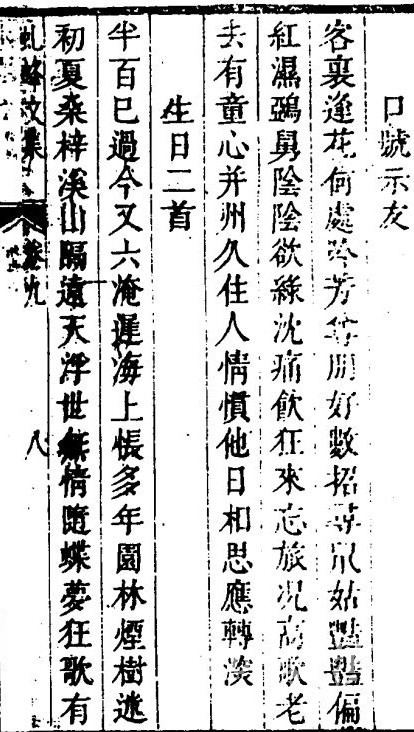 口號示友
客裏逢花何處吟芳尊朋好數招尋鼠姑豔豔偏
紅濕鵶舅陰陰欲綠沈痛飲狂來忘旅況高歌老
去有童心并州久住人情慣他日相思應轉深
生日二首
半百已過今又六淹遲海上悵多年園林煙樹迷
初夏桑梓溪山隔遠天浮世無情隨蝶夢狂歌有
虬峰文集 卷九 八